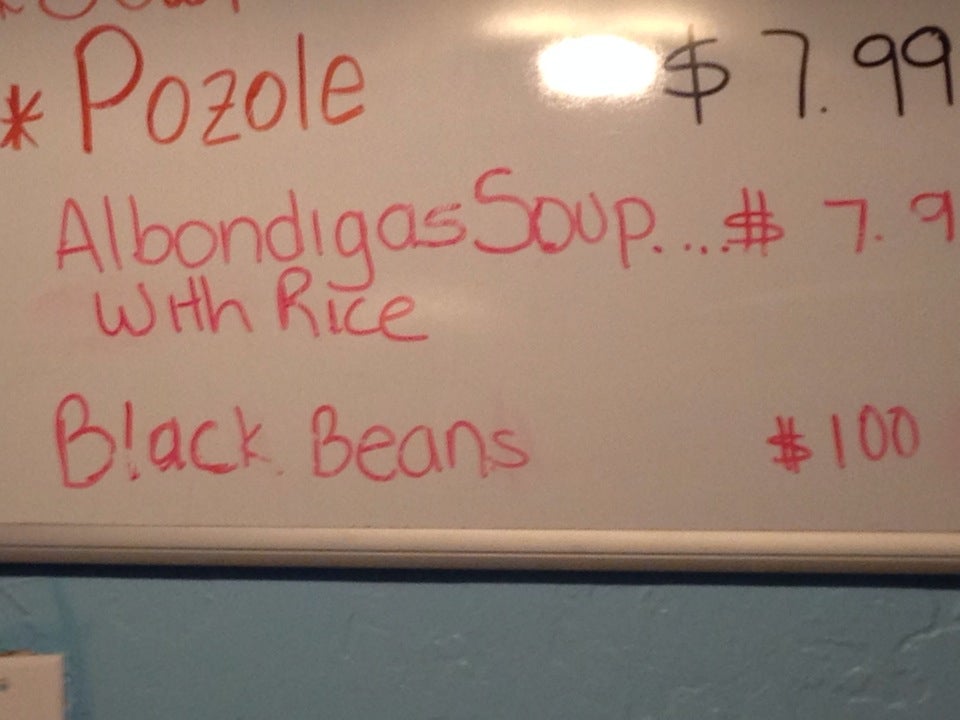 * Pozole $ 7.99
Albondigas Soup....$ 7.9
With Rice
Black Beans $100